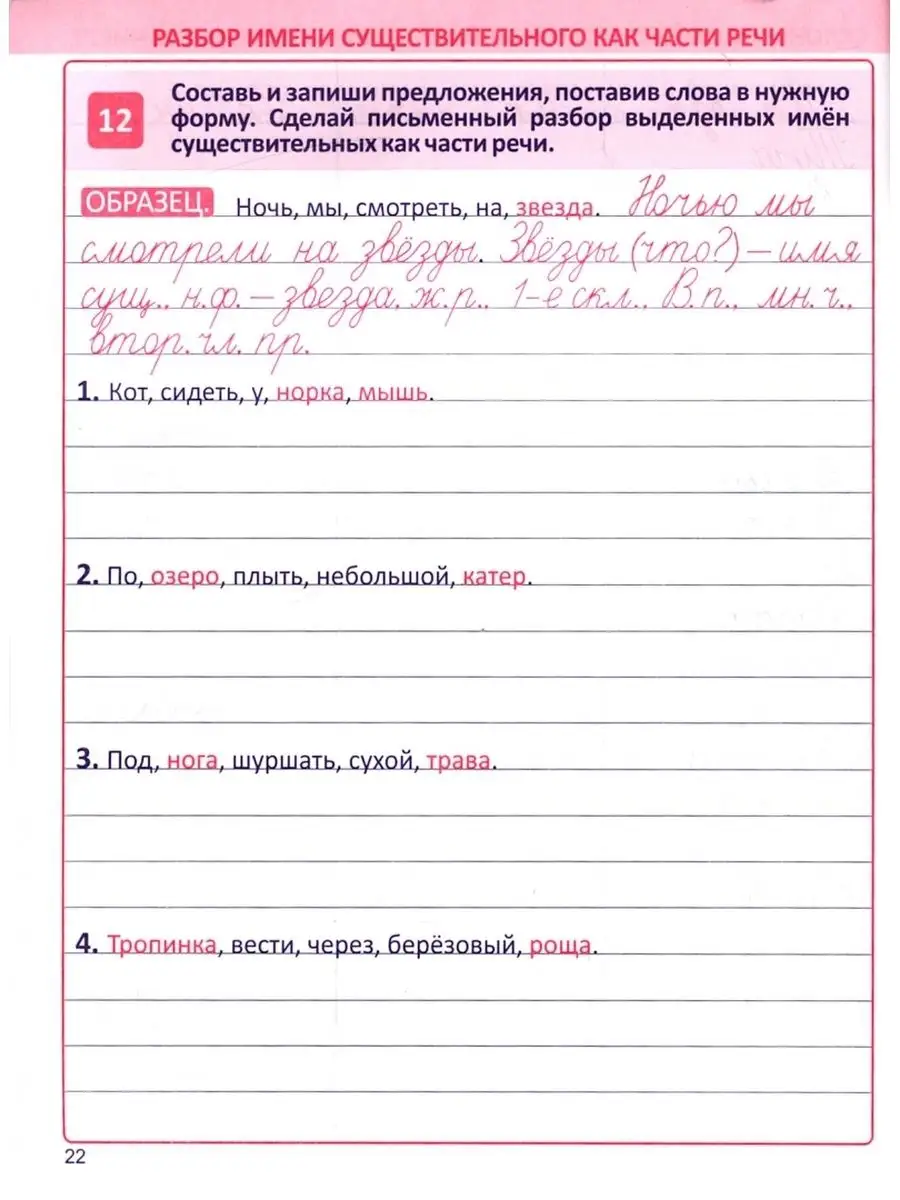 РАЗБОР ИМЕНИ СУЩЕСТВИТЕЛЬНОГО КАК ЧАСТИ РЕЧИ
12
Составь и запиши предложения, поставив слова в нужную
форму. Сделай письменный разбор выделенных имён
существительных как части речи.
ОБРАЗЕЦ. Ночь, мы, смотреть, на, звезда. Ночью мы
смотрели на звёзды. Звёзды (что?) – имя
сущ., н.ф. – звезда, ж.р., 1-е скл., В.п., мн.ч.,
втор. чл. пр.
1. Кот, сидеть, у, норка, мышь.
2. По, озеро, плыть, небольшой, катер.
3. Под, нога, шуршать, сухой, трава.
4. Тропинка, вести, через, берёзовый, роща.
22